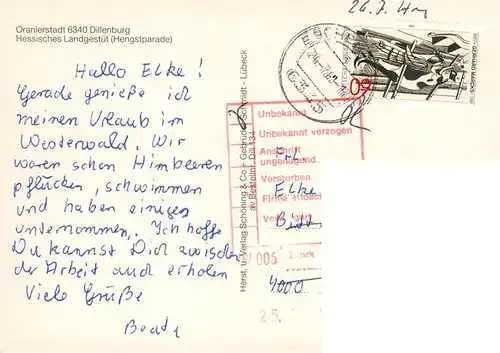 Oranierstadt 6340 Dillenburg
Hessisches Landgestüt (Hengstparade)
Hallo Elke!
Gerade genieße ich
meinen Urlaub im
Westerwald. Wir
waren schon Himbeeren
pflücken, schwimmen
und haben einiges
unternommen. Ich hoffe
Du kannst Dich zwischen
der Arbeit auch erholen
Viele Grüße
Beate
Herst. u. Verlag Schöning & Co + Gebrüder Schmidt - Lübeck
Bestellnr. Dil 134
26.7.
GERHARD MARCKS
60
Unbekannt
Unbekannt verzogen
Anschrift
ungenügend
Verstorben
Firma erloschen
Frl.
Elke
005
Zurück
4000
25.